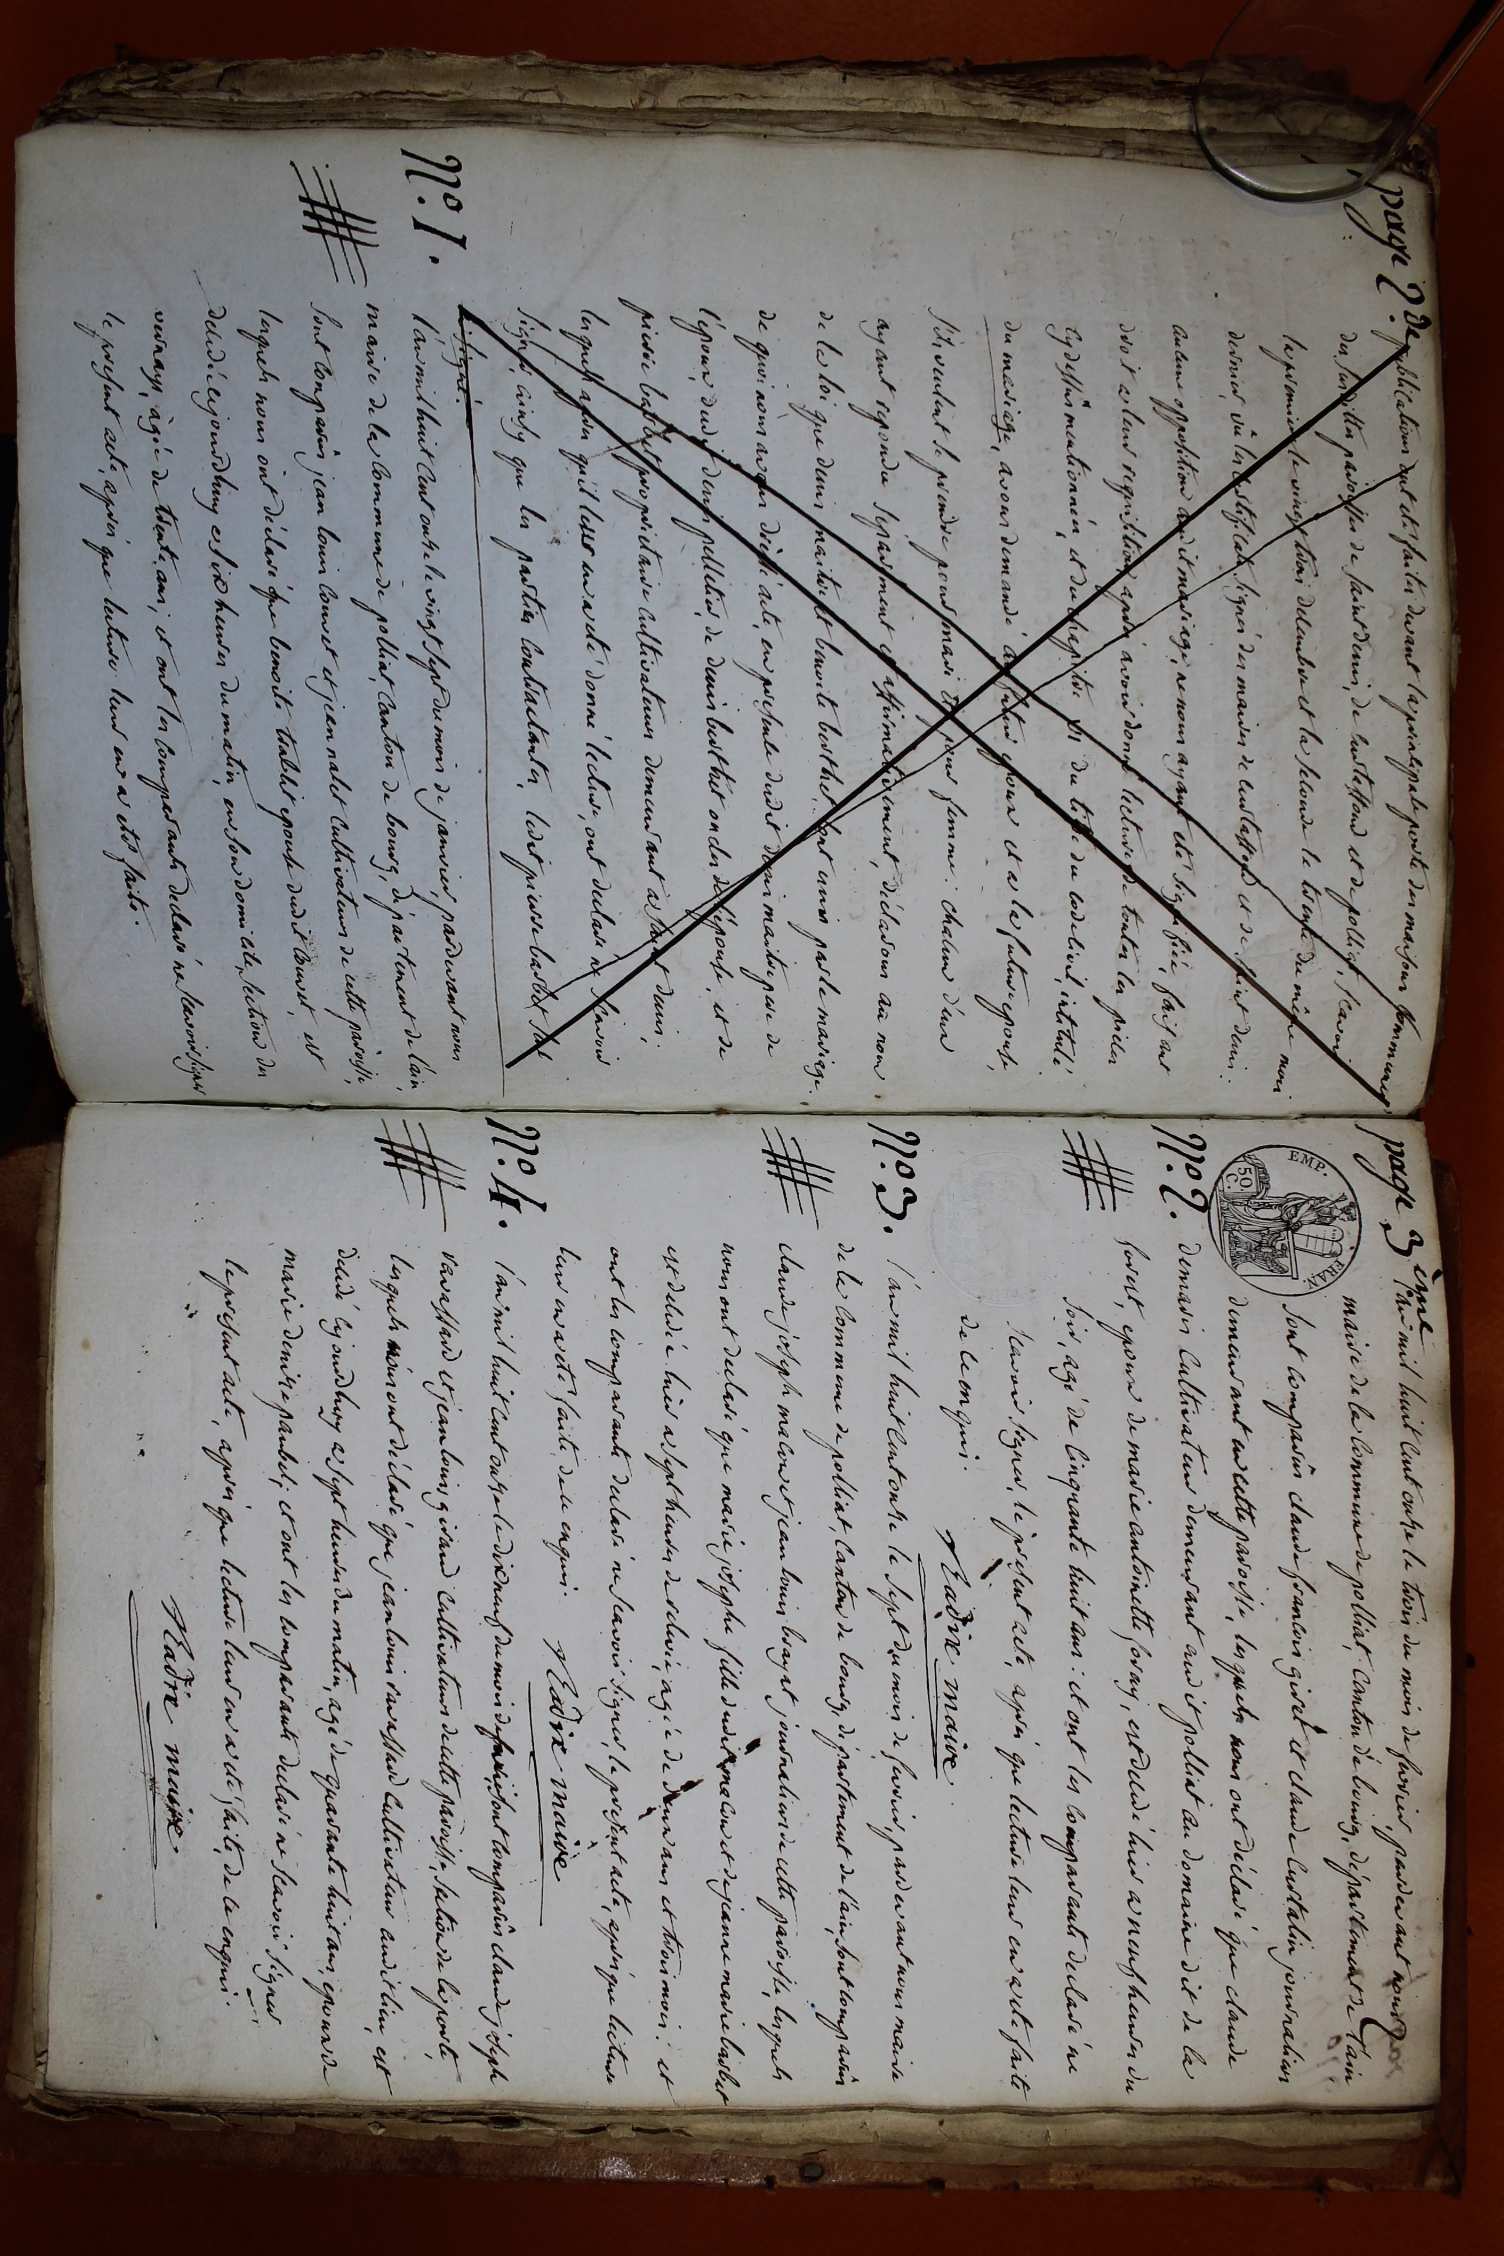 page 2.de
publications ont été faites devant la principale porte des maisons communes
des susdittes paroisses de saint denis, de curtaffond et de polliat, scavoir
la premiere le vingt trois decembre et la seconde le trente du même mois
dernier, vû les certificats signés des maires de curtaffond et de saint denis.
aucune opposition au dit mariage, ne nous ayant été signifiée, faisant
droit a leurs requisitions, apres avoir donné lecture de toutes les pieces
cy dessus mentionnées, et du chapitre six du titre du code civil, intitulé
du mariage, avons demandé au futur epoux et a la future epouse,
s'ils veulent se prendre pour mari et pour femme: chacun d'eux
ayant repondu separement et affirmativement, déclarons au nom
de la loi que denis maitre et benoite berthet, sont unis par le mariage.
de quoi nous avons dressé acte, en presence dudit denis maitre pere de
l'epoux, dudit denis pelletier, de denis berthet oncles de l'epouse, et de
pierre barbet proprietaire cultivateurs demeurant a saint denis,
lesquels apres qu'il leur en a été donné lecture, ont declaré ne scavoir
signer, ainsy que les parties contractantes, ledit pierre barbet s'est
signé.
N.o 1.
l'an mil huit cent onze le vingt sept du mois de janvier, pardevant nous
maire de la commune de polliat, canton de bourg, département de l'ain,
sont comparûs jean louis couvet et jean nalet cultivateurs de cette paroisse,
lesquels nous ont déclaré que benoite tablet epouse dudit couvet, est
decedée cejourdhuy a six heures du matin, en son domicile, section des
vernays, agée de trente ans; et ont les comparants declaré ne scavoir signer
le present acte, apres que lecture leur en a été faite.
page 3.eme
EMP. FRAN
50 C.
N.o 2.
l'an mil huit cent onze le trois du mois de fevrier, pardevant nous
maire de la commune de polliat, canton de bourg, département de l'ain
sont comparûs claude francois giret et claude curtalin journalier
demeurant en cette paroisse, lesquels nous ont déclaré que claude
demaris cultivateur demeurant audit polliat au domaine dit de la
forest, epoux de marie antoinette foray, est decedé hier a neuf heures du
soir, agé de cinquante huit ans: et ont les comparants declaré ne
scavoir signer, le present acte, apres que lecture leur en a été faite
de ce enquis.
maire
N.o 3.
l'an mil huit cent onze le sept du mois de fevrier, pardevant nous maire
de la commune de polliat, canton de bourg, département de l'ain, sont comparûs
claude joseph macon et jean louis brayat journaliers de cette paroisse, lesquels
nous ont declaré que marie josephe fille dudit macon et de jeanne marie barbet
est decedée hier a sept heures de relevée, agée de deux ans et trois mois: et
ont les comparants declaré ne scavoir signer le present acte, apres que lecture
leur en a été faite, de ce enquis.
maire
N.o 4.
l'an mil huit cent onze le dixneuf du mois de sont comparûs claude joseph
vavassard et jean louis girard cultivateurs de cette paroisse, section de la poiste,
lesquels nous ont déclaré que jean louis vavassard cultivateur audit lieu, est
decedé cejourdhuy a sept heures du matin, agé de quarante huit ans, epoux de
marie denise paubel; et ont les comparants declaré ne scavoir signer
le present acte, apres que lecture leur en a été faite, de ce enquis.
maire